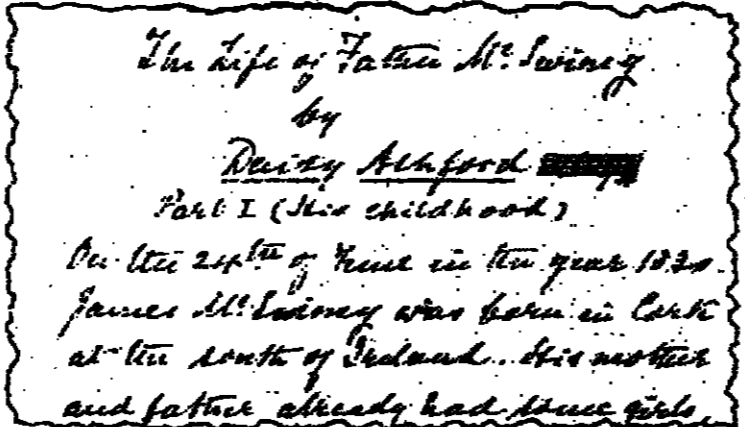 The Life of Father Mc. Swiney
by
Daisy Ashford
Part I (His childhood)
On the 24th of June in the year 1830
James Mc. Swiney was born in Cork
at the south of Ireland. His mother
and father already had girls